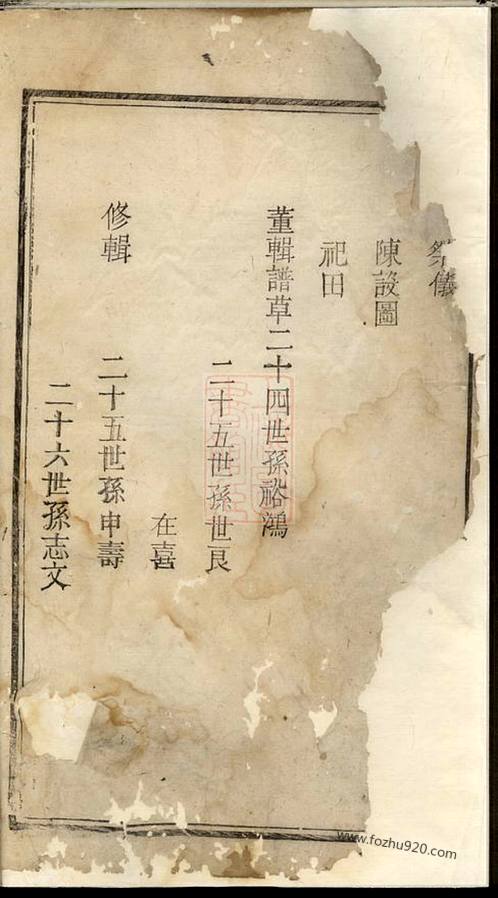 祭儀
陳設圖
祀田
董輯譜草二十四世孫裕鴻
二十五世孫世良
在喜
修輯 二十五世孫申壽
二十六世孫志文
www.fozhu920.com